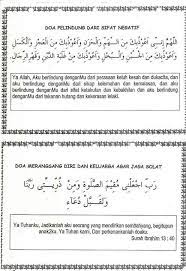 DOA PELINDUNG DARI SIFAT NEGATIF
اللهم إني أعوذبك من الهم والحزن وأعوذبك من العجز والكسل
وأعوذبك من الجبن والبخل وأعوذبك من
Ya Allah, Aku berlindung denganMu daripada keluh kesah dan dukacita, dan
aku berlindung denganMu dari lemah kemahuan dan malas, dan aku
berlindung denganMu dari sikap bakhil dan penakut, dan aku
berlindung denganMu dari tekanan hutang dan kekerasan lelaki.
DOA MERANGSANG DIRI DAN KELUARGA AGAR JAGA SOLAT
رب اجعلني مقيم الصلوة ومن ذريتي ربنا
وتقبل دعاء
Ya Tuhanku, Jadikanlah aku orang yang mendirikan sembahyang, begitupun
anakku. Ya Tuhan Kami, Dan perkenankanlah doaku.
Surah Ibrahim 13 : 40